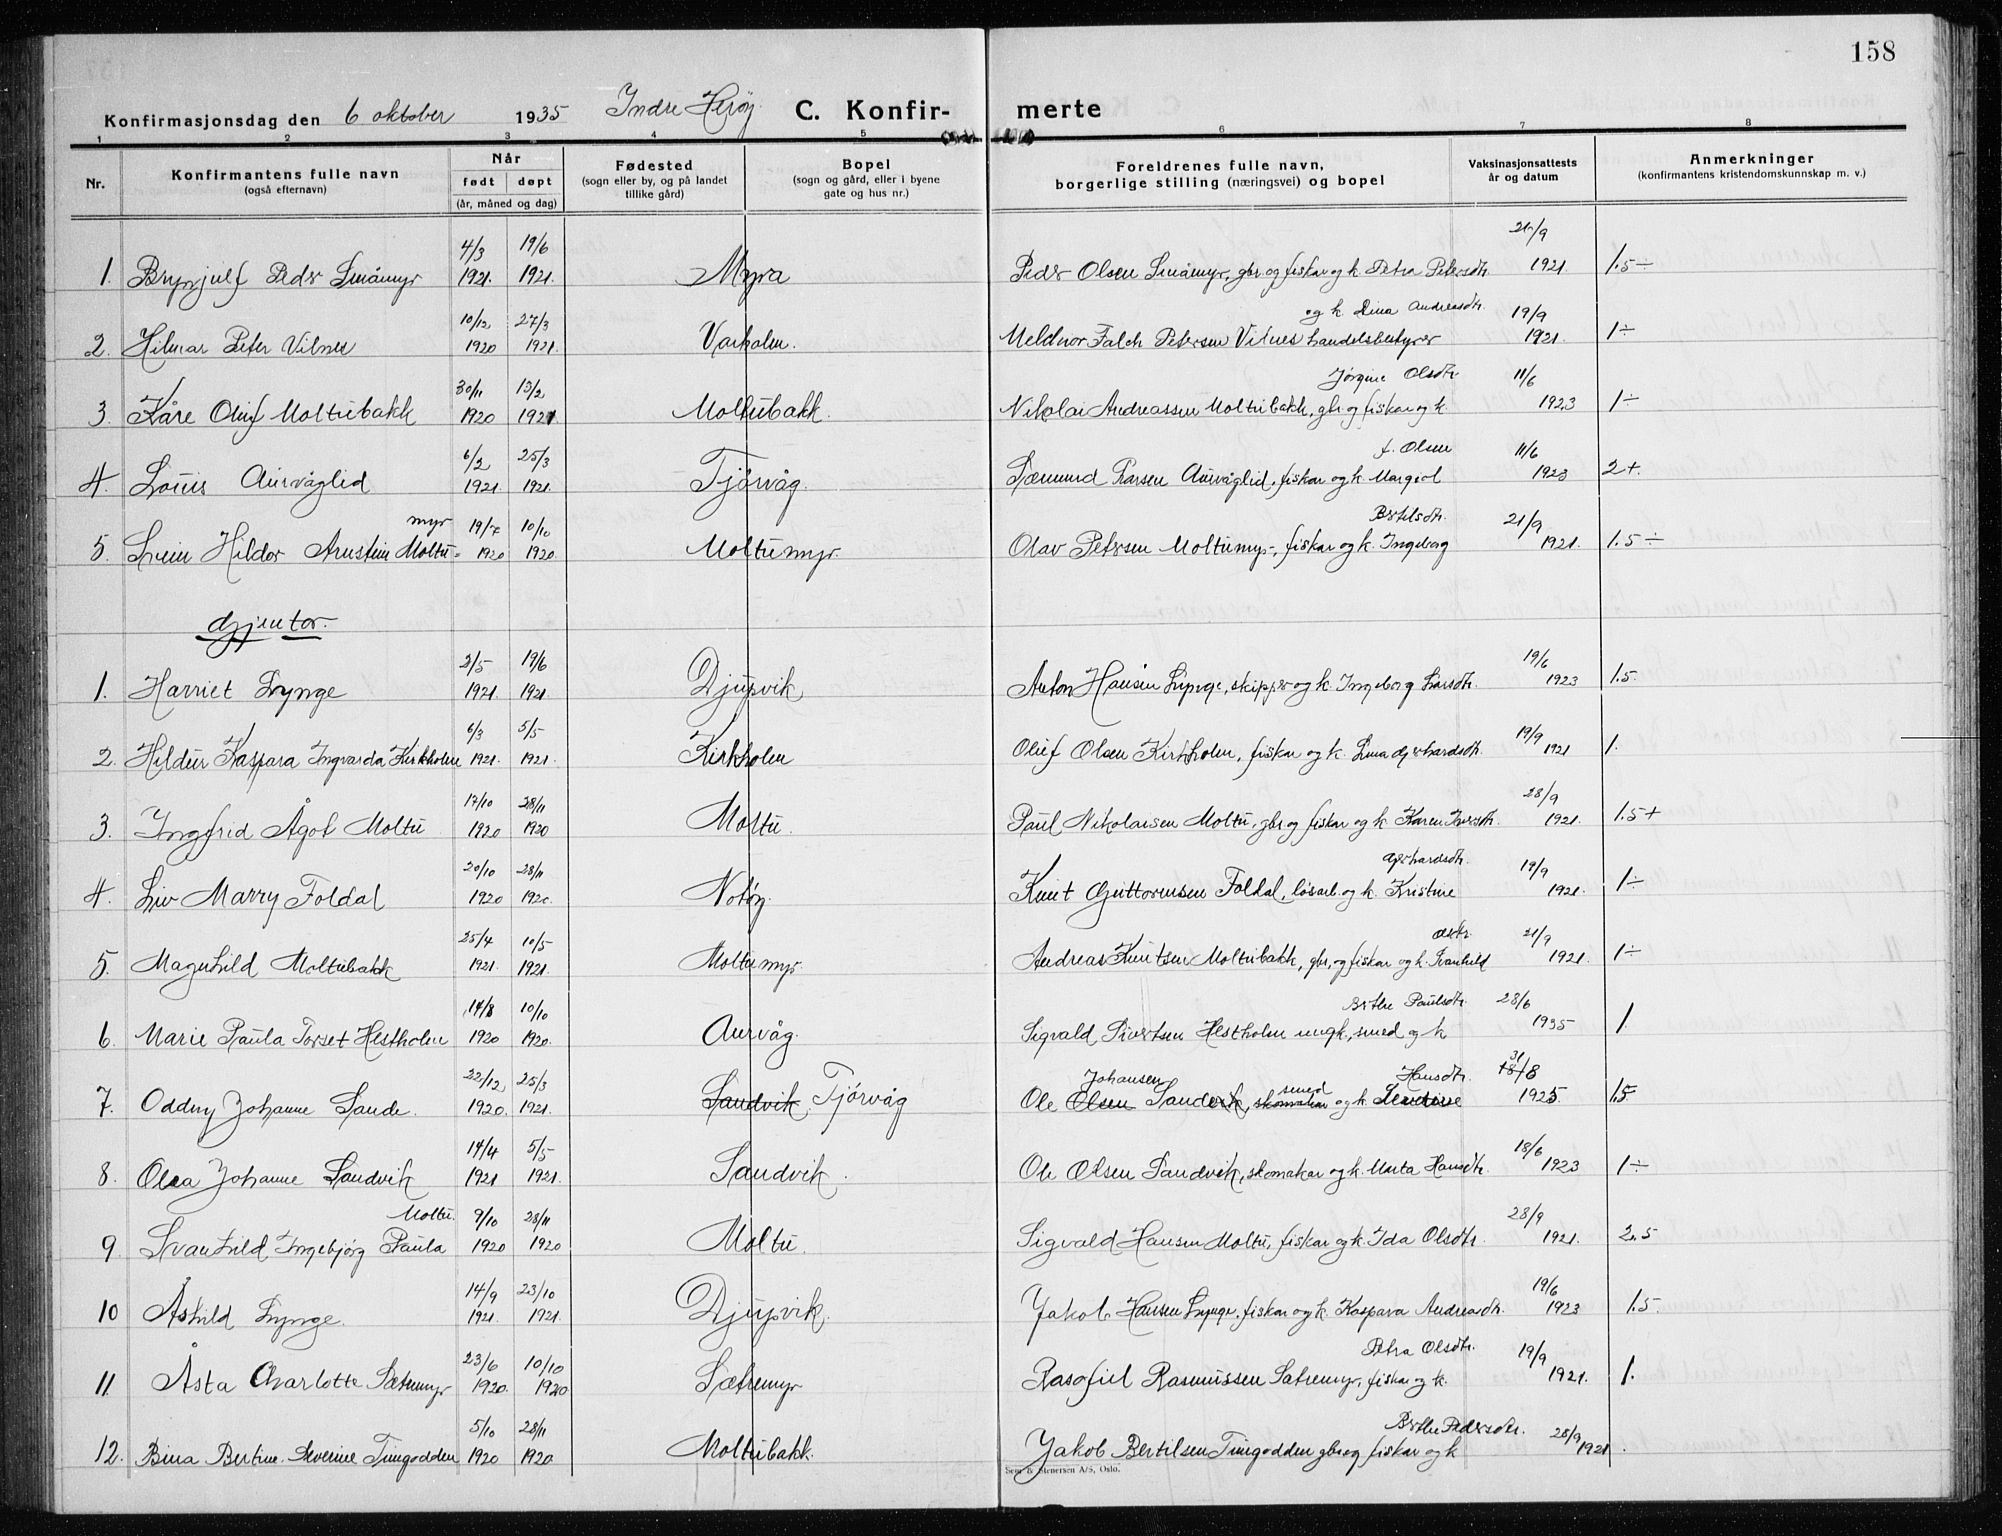 158
Konfirmasjonsdag den 6 oktober 1935 Indre Herøy. C. Konfir- merte
1 2 3 4 5 6 7 8
Nr. Konfirmantens fulle navn (også efternavn) Når født døpt (år, måned og dag) Fødested (sogn eller by, og på landet tillike gård) Bopel (sogn og gård, eller i byene gate og hus nr.) Foreldrenes fulle navn, borgerlige stilling (næringsvei) og bopel Vaksinasjonsattests år og datum Anmerkninger (konfirmantens kristendomskunnskap m. v.)
4/3 19/6 21/9
1. Brynjulf Peder Småmyr 1921. 1921. Myra Peder Olsen Småmyr, gbr og fiskar og k. Petra Petersdtr. 1921. 1.5 ÷
10/12 27/3 og k. Dina Andreasdtr. 19/9
2. Hilmar Peter Vilnes 1920 1921. Varholm. Meldnor Falch Petersen Vilnes handelsbestyrer 1921. 1 ÷
30/11 13/2 Jørgine Olsdtr. 11/6
3. Kåre Oluf Moltubakk 1920 1921 Moltubakk. Nikolai Andreassen Moltubakk, gbr og fiskar og k. 1923 1 ÷
6/2 25/3 f. Olsen 11/6
4. Louis Aurvåglid 1921. 1921. Tjörvåg. Sæmund Larsen Aurvåglid, fiskar og k. Margod 1923 2+.
myr 19/7 10/10 Bertilsdtr. 21/9
5. Svein Hilder Arnstein Moltu- 1920 1920. Moltumyr Olav Petersen Moltumyr, fiskar og k. Ingeborg 1921. 1.5 ÷
Gjentor.
2/5 19/6 19/6
1. Harriet Lynge 1921. 1921. Djupvik Anton Hansen Lynge, skipper og k. Ingeborg Larsdtr. 1923 1.5.
6/3 5/5 19/9
2. Hildur Kaspara Ingvarda Kirkholm 1921. 1921. Kirkholm Oluf Olsen Kirkholm, fiskar og k. Lina Gerhardsdtr. 1921 1.
17/10 28/11 28/9
3. Ingfrid Ågot Moltu 1920 1920 Moltu. Paul Nikolaisen Moltu, gbr og fiskar og k. Karen Iversdtr. 1921. 1.5+
20/10 28/11 Gerhardsdtr. 19/9
4. Liv Marry Foldal 1920 1920 Notøy. Knut Guttormsen Foldal, løsarb. og k. Kristine 1921. 1 ÷
25/4 10/5 Olsdtr. 21/9
5. Magnhild Moltubakk 1921. 1921. Moltumyr. Andreas Knutsen Moltubakk, gbr, og fiskar og k. Svanhild 1921. 1 ÷
14/8 10/10 Berthe Paulsdtr. 28/6
6. Marie Paula Torset Hestholm 1920 1920. Aurvåg. Sigvald Sivertsen Hestholm ungk., smed og k 1935 1.
22/12 25/3 Johansen smed Hansdtr. 31 18/8
7. Oddny Johanne Sande. 1920. 1921. Sandvik, Tjörvåg Ole Olsen Sandvik, skomakar og k. 1925 1.5
14/4 5/5 18/6
8. Olea Johanne Sandvik 1921 1921. Sandvik. Ole Olsen Sandvik, skomakar og k. Marta Hansdtr. 1923 1 ÷
Moltu. 9/10 28/11 28/9
9. Svanhild Ingebjørg Paula 1920 1920 Moltu. Sigvald Hansen Moltu, fiskar og k. Ida Olsdtr. 1921. 2.5
14/9 23/10 19/6
10 Åshild Lynge. 1921. 1921. Djupvik. Jakob Hansen Lynge, fiskar og k. Kaspara Andreasdtr. 1923 1.5.
23/6 10/10 Petra Olsdtr. 19/9
11 Åsta Charlotte Sætremyr 1920. 1920 Sætremyr Rasofiel Rasmussen Sætremyr, fiskar og k. 1921. 1.
5/10 28/11 Berthe Pedersdtr. 28/9
12. Bina Bertine Severine Tungodden 1920 1920 Moltubakk. Jakob Bertilsen Tungodden gbr og fiskar og k 1921.
Sem & Stenersen A/S, Oslo.